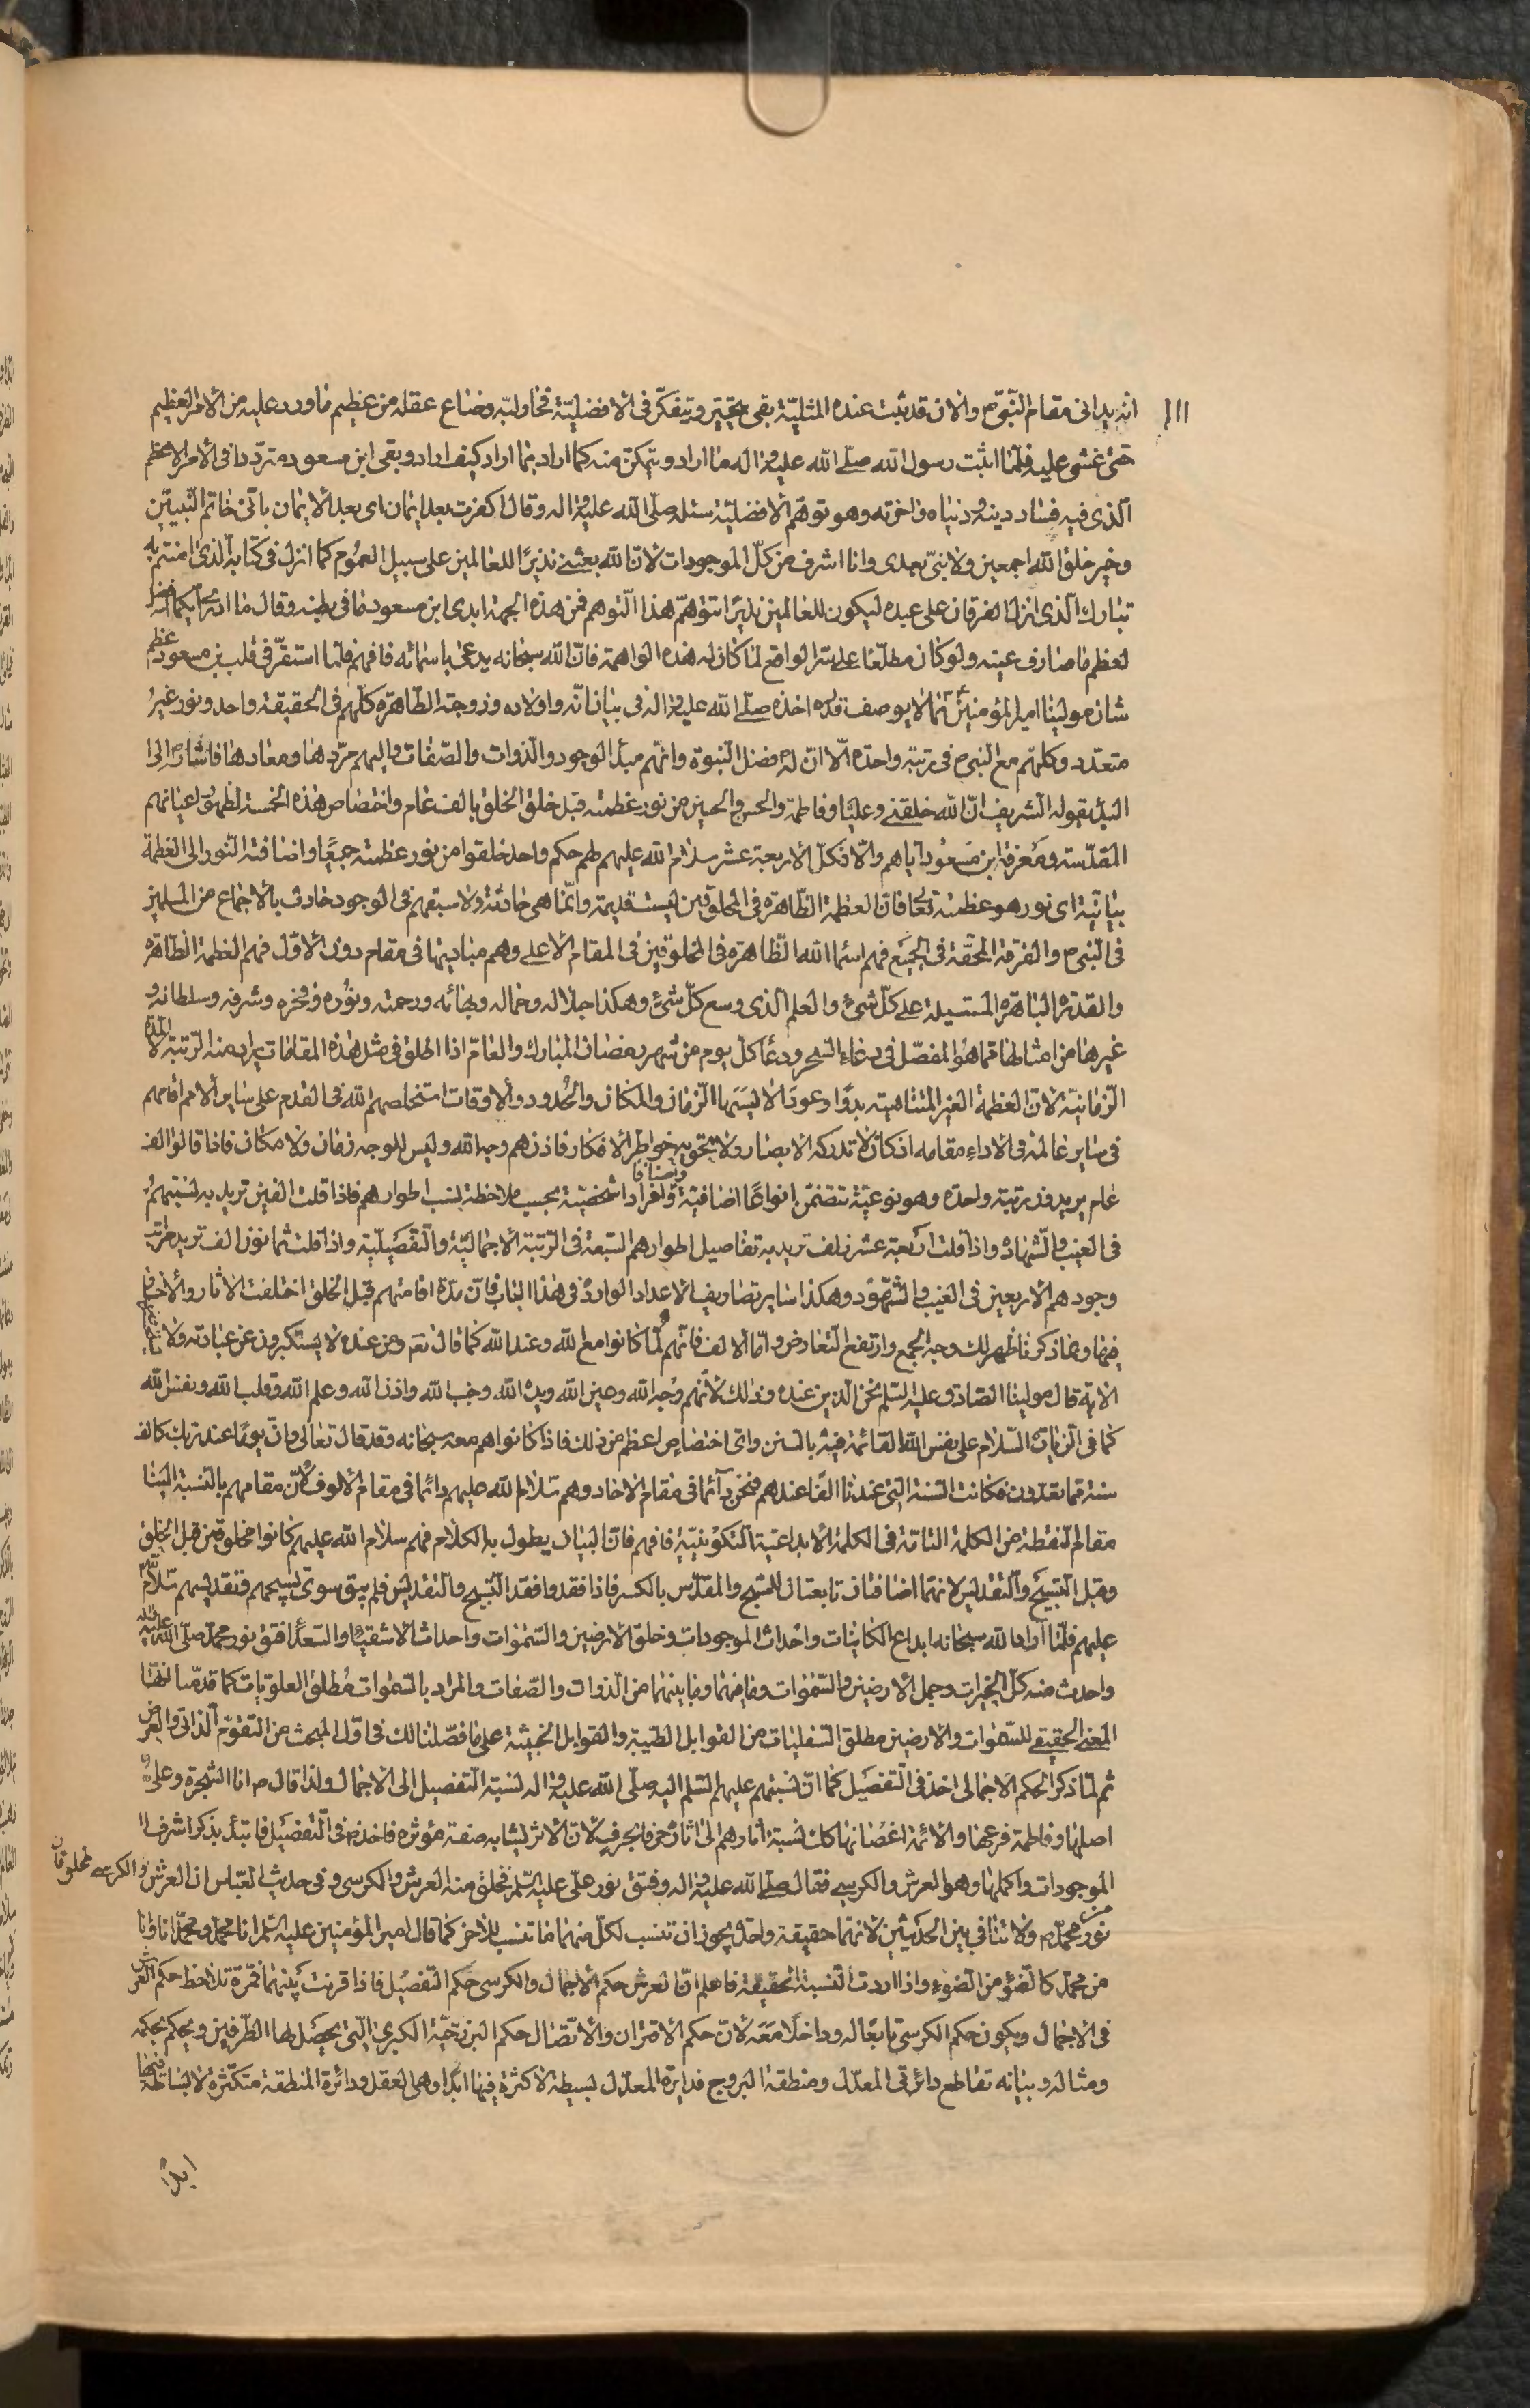 ١١١
انه يداني مقام النبي ص والان قد ثبت عنده المثلية بقي يتحير ويتفكر في الافضلية فحاول به وضاع عقله من عظيم ما ورد عليه من الامر العظيم
حتى غشي عليه فلما اثبت رسول الله صلى الله عليه واله ما اراد وتمكن منه كما اراد بما اراد كيف اراد وبقي ابن مسعود مترددا في الامر الاعظم
الذي فيه فساد دينه ودنياه واخرته وهو توهم الافضلية سئله صلى الله عليه واله وقال اكفرت بعد ايمان اى بعد الايمان بانى خاتم النبيين
وخير خلق الله اجمعين ولا نبي بعدى وانا اشرف من كل الموجودات لان الله بعثني نذيرا للعالمين على سبيل العموم كما انزل في كتابه الذي امنتم به
تبارك الذي نزل الفرقان على عبده ليكون للعالمين نذيرا اتتوهم هذا التوهم فمن هذه الجهة ابدى ابن مسعود ما في بطنه وقال ما
لعظم ما صار في عينه ولو كان مطلعا على سر الواقع لما كان له هذه الواهمة فان الله سبحانه يدعى باسمائه فافهم فلما استقر في قلب بن مسعود عظم
شان مولينا امير المؤمنين بما لا يوصف قدره اخذه صلى الله عليه واله في بيان انه واولاده وزوجته الطاهرة كلهم في الحقيقة واحد ونور غير
متعدد وكلهم مع النبي ص في رتبة واحدة الا ان له فضل النبوة وانهم مبدأ الوجود والذوات والصفات واليهم مردها ومعادها فاشار ص الى
البدأ بقوله الشريف ان الله خلقني وعليا وفاطمة والحسن والحسين من نور عظمته قبل خلق الخلق بالف عام واختصاص هذه الخمسة لظهور اعيانهم
المقدسة ومعرفة ابن مسعود اياهم والا فكل الاربعة عشر سلام الله عليهم لهم حكم واحد خلقوا من نور عظمته جميعا واضافة النور الى العظمة
بيانية اى نور هو عظمته تعالى فان العظمة الظاهرة في المخلوقين ليست قديمة وانما هي حادثة ولا سبقهم في الوجود حادث بالاجماع من المسلمين
في النبي ص والفرقة المحقة في الجميع فهم اسماء الله الظاهرة في المخلوقين في المقام الاعلى وهم مباديها في مقام دون الاول فهم العظمة الظاهرة
والقدرة الباهرة المستطيلة على كل شئ والعلم الذي وسع كل شئ وهكذا جلاله وجماله وبهائه ورحمته ونوره وفخره وشرفه وسلطانه و
غيرها من امثالها مما هو المفصل في دعاء السحر ودعاء كل يوم من شهر رمضان المبارك والعام اذا اطلق في مثل هذه المقامات يراد منه الرتبة لا المدة
الزمانية لان العظمة الغير المتناهية بدوا وعودا لا يسعها الزمان والمكان والحدود والاوقات استخلصهم الله في القدم على ساير الامم اقامهم
في ساير عالمه في الاداء مقامه اذ كان لا تدركه الابصار ولا تحويه خواطر الافكار فاذن هم وجه الله وليس للوجه زمان ولا مكان فاذا قالوا الف
عام يريدون رتبة واحدة وهو نوعية تتضمن انواعا اضافية واصنافا وافرادا شخصية بحسب ملاحظة نسب اطوارهم فاذا قلت الفين تريد به نسبتهم
في الغيب والشهادة واذا قلت اربعة عشر الف تريد به تفاصيل اطوارهم السبعة في الرتبة الاجمالية والتفصيلية واذا قلت ثمانون الف تريد مراتب
وجودهم الاربعين في الغيب والشهود وهكذا ساير تصاريف الاعداد الواردة في هذا الباب فان مدة اقامتهم قبل الخلق اختلفت الاثار والاخبار
فيها وبما ذكرنا ظهر لك وجه الجمع وارتفع التعارض واما الالف فانهم لما كانوا مع الله وعند الله كما قال تعالى ومن عنده لا يستكبرون عن عبادته ولا يستحسرون
الاية قال مولينا الصادق عليه السلم نحن الذين عنده وذلك لانهم وجه الله وعين الله ويد الله وجنب الله واذن الله وعلم الله وقلب الله ونفس الله
كما في الزيارة السلام على نفس الله القائمة فيه بالسنن واى اختصاص اعظم من ذلك فاذا كانوا هم معه سبحانه وقد قال تعالى وان يوما عند ربك كالف
سنة مما تعدون فكانت السنة التي عندنا الفا عندهم فنحن دائما في مقام الاحاد وهم سلام الله عليهم دائما في مقام الالوف لان مقامهم بالنسبة الينا
مقام النقطة من الكلمة التامة في الكلمة الابداعية التكوينية فافهم فان البيان يطول به الكلام فهم سلام الله عليهم كانوا مخلوقين قبل الخلق
وقبل التسبيح والتقديس لانهما اضافتان تابعتان للمسبح والمقدس بالكسر فاذا فقدوا فقد التسبيح والتقديس فلم يبق سوى تسبيحهم وتقديسهم سلام الله
عليهم فلما اراد الله سبحانه ابداع الكاينات واحداث الموجودات وخلق الارضين والسموات واحداث الاشقياء والسعداء فتق نور محمد صلى الله عليه واله
واحدث منه كل الخيرات وجمل الارضين والسموات وما فيهما وما بينهما من الذوات والصفات والمراد بالسموات مطلق العلويات كما قدمنا انها
المعنى الحقيقي للسموات والارضين مطلق السفليات من القوابل الطيبة والقوابل الخبيثة على ما فصلنا لك في اول المبحث من التقوم الذاتي والعرضي
ثم لما ذكر الحكم الاجمالي اخذ في التفصيل كما ان نسبتهم عليهم السلم اليه صلى الله عليه واله نسبة التفصيل الى الاجمال ولذا قال ص انا الشجرة وعلي
اصلها وفاطمة فرعها والائمة اغصانها كان نسبة اثارهم الى اثاره حرفا بحرف لان الاثر يشابه صفة مؤثره فاخذ ص في التفصيل فابتدأ بذكر اشرف
الموجودات واكملها وهو العرش والكرسي فقال صلى الله عليه واله وفتق نور علي عليه السلم فخلق منه العرش والكرسي وفي حديث العباس ان العرش والكرسي مخلوقان
من نور محمد ص ولا تنافي بين الحديثين لانهما حقيقة واحدة يجوز ان تنسب لكل منهما ما تنسب للاخر كما قال امير المؤمنين عليه السلم انا محمد ومحمد انا وانا
من محمد كالضوء من الضوء واذا اردت النسبة الحقيقية فاعلم ان العرش حكم الاجمال والكرسي حكم التفصيل فاذا قرنت بينهما فمرة تلاحظ حكم العرش
في الاجمال ويكون حكم الكرسي تابعا له وداخلا معه لان حكم الاقتران والاتصال حكم البرزخية الكبرى التي يحصل لها الطرفين ويحكم بحكمه
ومثاله وبيانه تقاطع دائرتي المعدل ومنطقة البروج فدايرة المعدل بسيطة لا كثرة فيها ابدا وهي العقل ودائرة المنطقة متكثرة لا بساطة فيها
ابدا